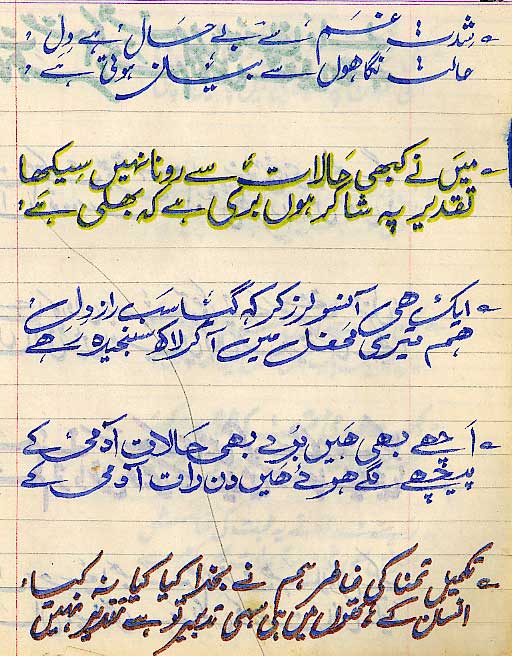 شدت غم سے بے حال ہے دل
حالت نگاھوں سے بیان ہوتی ہے
میں نے کبھی حالات سے رونا نہیں سیکھا
تقدیر پہ شاکر ہوں بری ہے کہ بھلی ہے
ایک ھی آنسو لرز کر کہہ گیا سب راز دل
ھم تیری محفل میں آکر لاکھ سنجیدہ رہے
اچھے بھی ھیں بُرے بھی حالات آدمی کے
پیچھے لگے ھوئے ھیں دن رات آدمی کے
تکمیل تمنا کی خاطر ہم نے بخدا کیا کیا نہ کیا
انسان کے ہاتھوں میں ہی سہی تدبیر تو ہے تقدیر نہیں